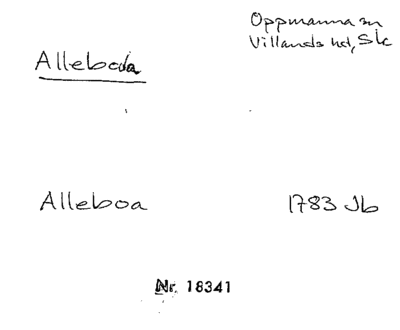 Oppmanna sn
Villands hd, Sk
Alleboda
Alleboa
1783 Jb
Nr. 18341